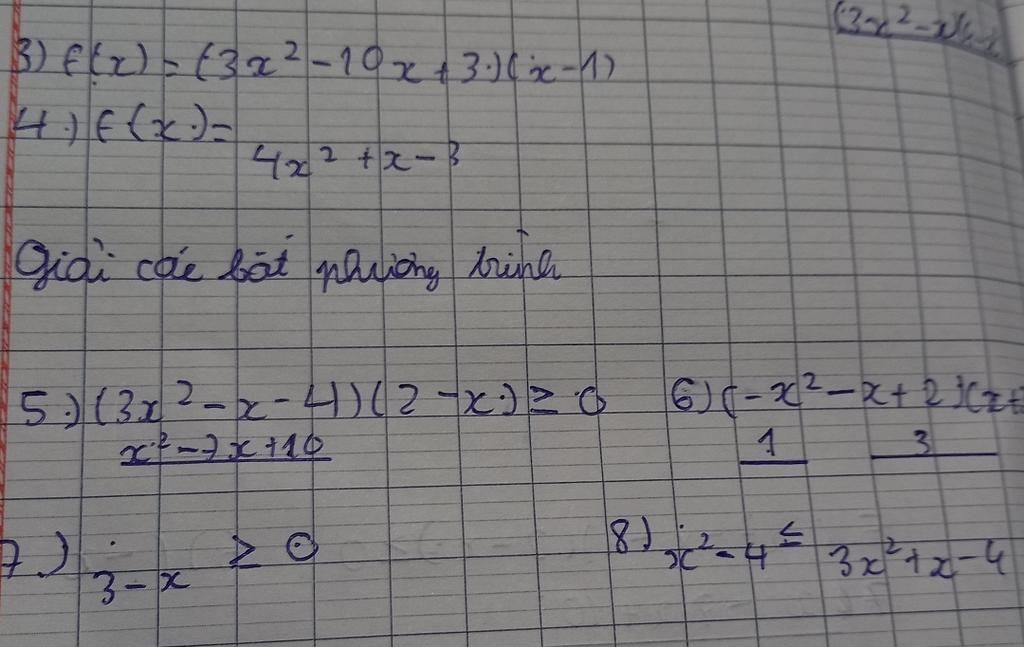 (3x² - x)(
3) f(x) = (3x² - 10x + 3)(x - 1)
4) f(x) =
4x² + x - 3
Giải các bất phương trình
5) (3x² - x - 4)(2 - x) ≥ 0 6) (-x² - x + 2)(x +
x² - 7x + 10 1 3
7) ≥ 0 8) ≤
3 - x x² - 4 3x² + x - 4